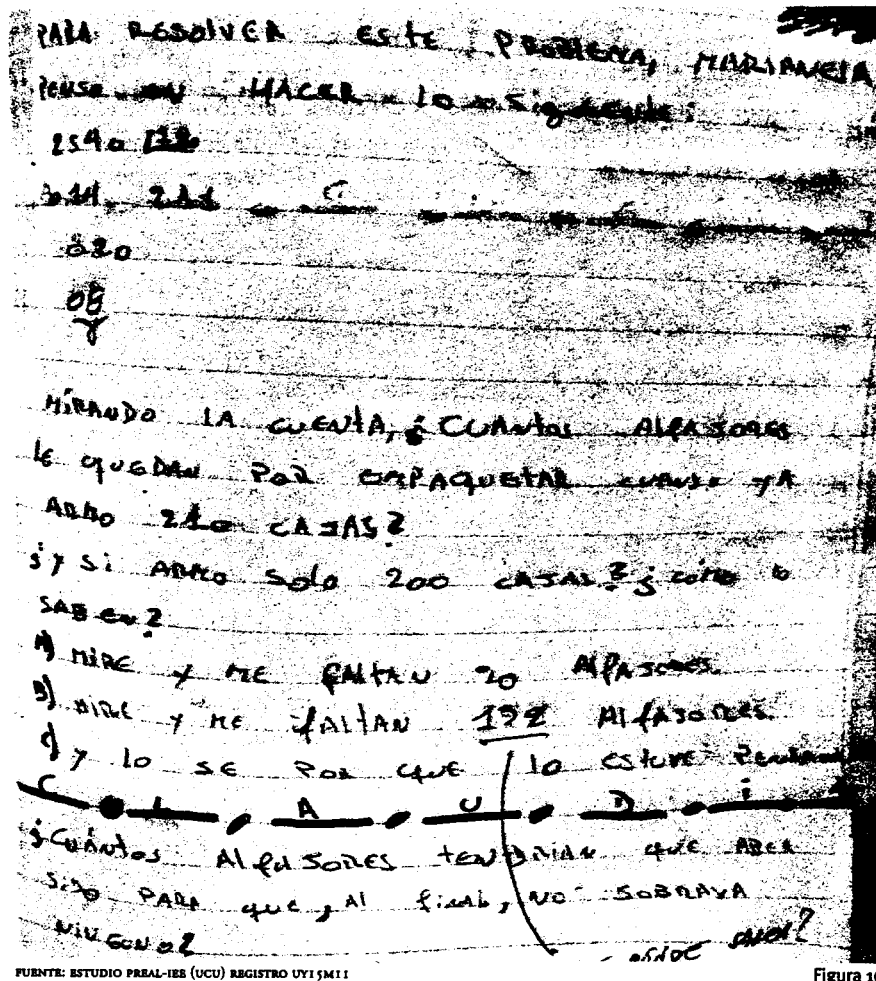 PARA RESOLVER ESTE PROBLEMA, MARIANELA
PENSO EN HACER LO Siguiente:
2540 12
014 211
020
08
MiRANDO LA CUENTA, ¿CUANTOS ALFAJORES
LE QUEDAN POR EMPAQUETAR CUANDO YA
ARMO 210 CAJAS?
¿y Si ARMO Solo 200 CAJAS? ¿como lo
SABEN?
A) MIRE y ME FALTAN 20 ALFAJORES
B) MIRE y ME fALTAN
ALfAJORES
C) y LO SE POR QUE LO ESTUVE
C L A U D i A
¿CUÁNTOS ALFAJORES TENDRIAN QUE ABER
SIDO PARA QUE, AL fiNAL, NO SOBRAVA
NiNGUNO?
FUENTE: ESTUDIO PREAL-IEE (UCU) REGISTRO UY15M11
Figura